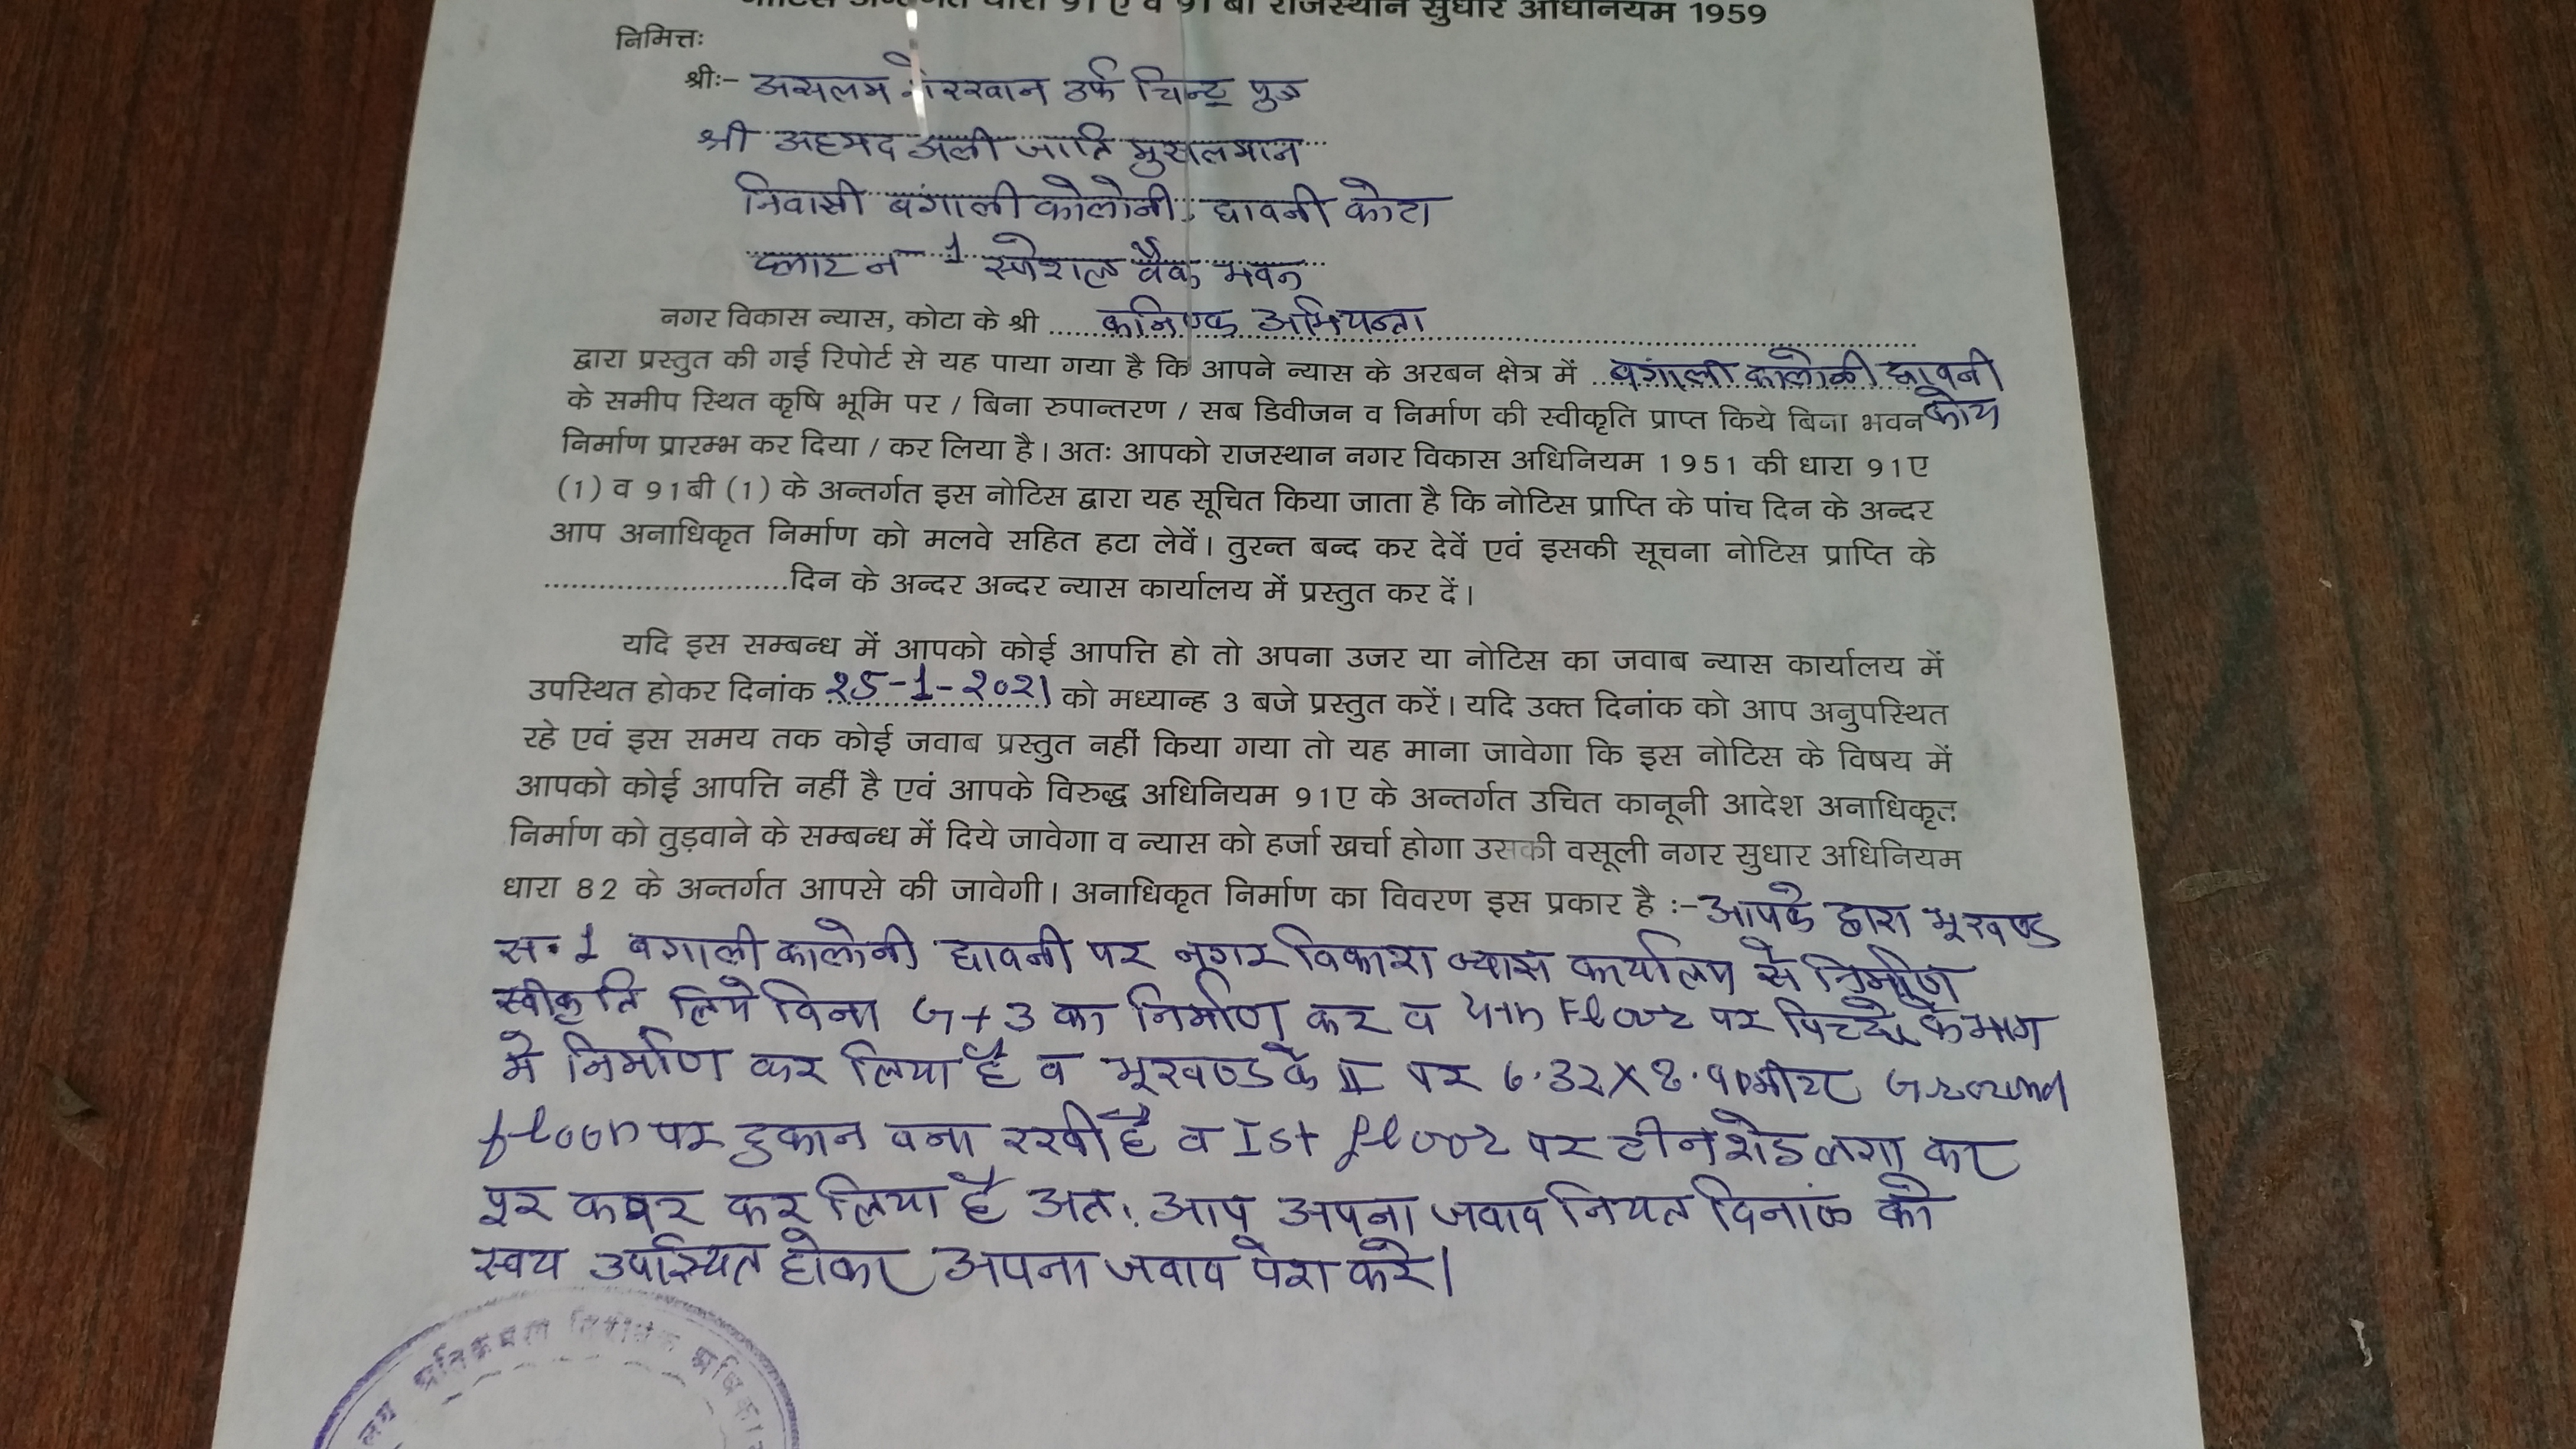 नोटिस अन्तर्गत धारा 91 ए व 91 बी राजस्थान सुधार अधिनियम 1959
निमित्तः
श्रीः- असलम शेरखान उर्फ चिन्टू पुत्र
श्री अहमद अली जाति मुसलमान
निवासी बंगाली कोलोनी, छावनी कोटा
प्लाट न 1 स्पेशल बैंक भवन
नगर विकास न्यास, कोटा के श्री ...... कनिष्क अभियन्ता
द्वारा प्रस्तुत की गई रिपोर्ट से यह पाया गया है कि आपने न्यास के अरबन क्षेत्र में ..बंगाली कालोनी छावनी
के समीप स्थित कृषि भूमि पर / बिना रुपान्तरण / सब डिवीजन व निर्माण की स्वीकृति प्राप्त किये बिना भवन कोटा
निर्माण प्रारम्भ कर दिया / कर लिया है। अतः आपको राजस्थान नगर विकास अधिनियम 1951 की धारा 91ए
(1) व 91बी (1) के अन्तर्गत इस नोटिस द्वारा यह सूचित किया जाता है कि नोटिस प्राप्ति के पांच दिन के अन्दर
आप अनाधिकृत निर्माण को मलवे सहित हटा लेवें। तुरन्त बन्द कर देवें एवं इसकी सूचना नोटिस प्राप्ति के
...........................दिन के अन्दर अन्दर न्यास कार्यालय में प्रस्तुत कर दें।
यदि इस सम्बन्ध में आपको कोई आपत्ति हो तो अपना उजर या नोटिस का जवाब न्यास कार्यालय में
उपस्थित होकर दिनांक 25-1-2021 को मध्यान्ह 3 बजे प्रस्तुत करें। यदि उक्त दिनांक को आप अनुपस्थित
रहे एवं इस समय तक कोई जवाब प्रस्तुत नहीं किया गया तो यह माना जावेगा कि इस नोटिस के विषय में
आपको कोई आपत्ति नहीं है एवं आपके विरुद्ध अधिनियम 91ए के अन्तर्गत उचित कानूनी आदेश अनाधिकृत
निर्माण को तुड़वाने के सम्बन्ध में दिये जावेगा व न्यास को हर्जा खर्चा होगा उसकी वसूली नगर सुधार अधिनियम
धारा 82 के अन्तर्गत आपसे की जावेगी। अनाधिकृत निर्माण का विवरण इस प्रकार है :- आपके द्वारा भूखण्ड
स. 1 बगाली कालोनी छावनी पर नगर विकाश न्यास कार्यालय से निर्माण
स्वीकृति लिये बिना G+3 का निर्माण कर व 4th Floor पर पिच्छे के भाग
मे निर्माण कर लिया है व भूखण्ड के II पर 6.32X8.90मीटर Ground
floor पर दुकान बना रखी है व Ist floor पर टीन शेड लगा कर
कवर कर लिया है अत: आप अपना जवाब नियत दिनांक को
स्वय उपस्थित होकर अपना जवाब पेश करे।